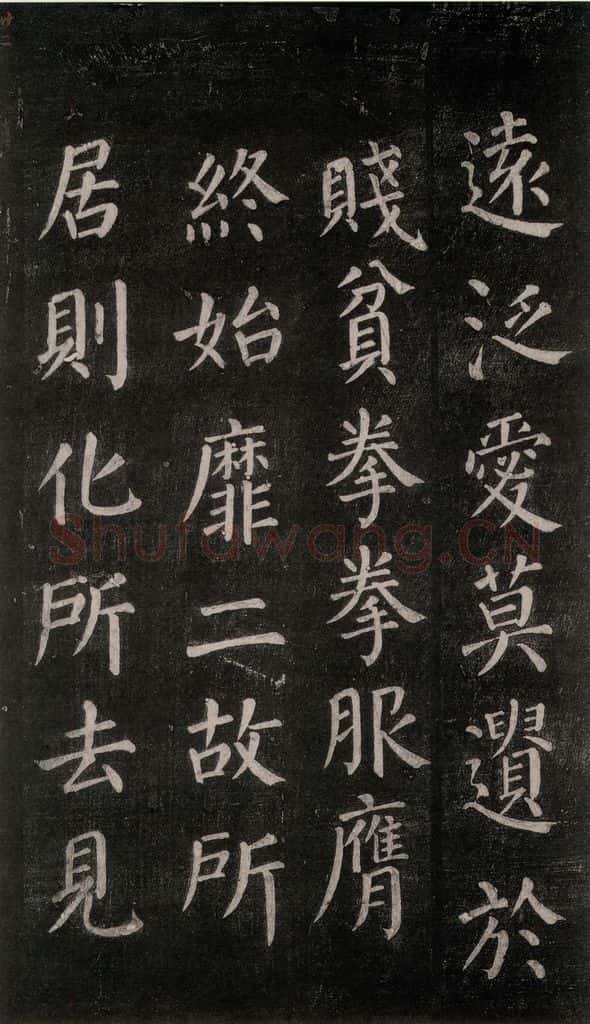 遠泛愛莫遺於
賤貧拳拳服膺
終始靡二故所
居則化所去見
Shufawang.CN